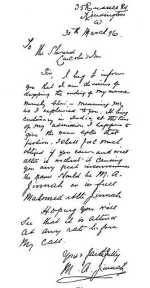 35 Russell Rd
Kensington
W
30th March /96.
To The Steward
Lincoln's Inn
Sir, I beg to inform
you that I am desirous of
dropping the ending of my name
namely bhai — meaning Mr,
as I explained to you it being
customary in India at the time
of my admission I happen to
give the name
fashion. I shall feel much
obliged if you can and will
alter it without it causing
you any great inconvenience
the name should be M. A.
Jinnah or in full
Mahomed Alli Jinnah
Hoping you will
see that it is altered
at any rate before
my call.
Yours faithfully
M. A. Jinnah